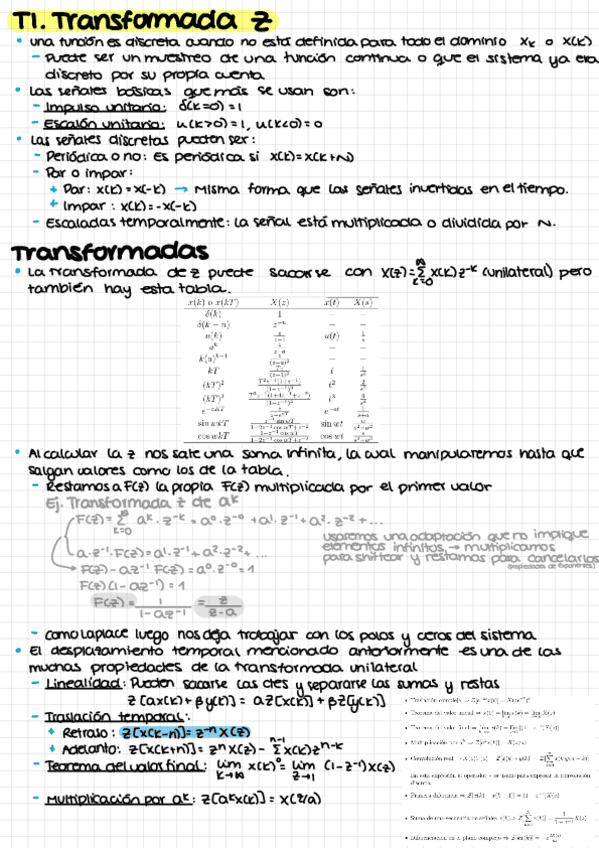 T1. Transformada Z
• una función es discreta cuando no está definida para todo el dominio xₖ o x(k)
– Puede ser un muestreo de una función continua o que el sistema ya era
discreto por su propia cuenta
• Las señales básicas que más se usan son:
– Impulso unitario: δ(k=0)=1
– Escalón unitario: u(k>0)=1, u(k<0)=0
• Las señales discretas pueden ser:
– Periódica o no: Es periódica si x(k)=x(k+N)
– Par o impar:
+ Par: x(k)=x(-k) → Misma forma que las señales invertidas en el tiempo.
+ Impar: x(k)=-x(-k)
– Escaladas temporalmente: la señal está multiplicada o dividida por N.
Transformadas
• La transformada de z puede sacarse con X(z)=∑ₖ₌₀^∞ x(k)z⁻ᵏ (unilateral) pero
también hay esta tabla.
x(k) o x(kT) X(z) x(t) X(s)
δ(k) 1 – –
δ(k − n) z⁻ⁿ – –
u(k) z/(z−1) u(t) 1/s
aᵏ z/(z−a) – –
k(a)ᵏ⁻¹ z/(z−a)² – –
kT t
(kT)² t²
(kT)³ t³
sin wkT sin wt
cos wkT cos wt
• Al calcular la z nos sale una suma infinita, la cual manipularemos hasta que
salgan valores como los de la tabla.
– Restamos a F(z) la propia F(z) multiplicada por el primer valor
Ej. Transformada z de aᵏ
F(z)=∑ₖ₌₀^∞ aᵏ·z⁻ᵏ=a⁰·z⁻⁰+a¹·z⁻¹+a²·z⁻²+...
usaremos una adaptación que no implique
elementos infinitos, → multiplicamos
para shiftear y restamos para cancelarlos
(propiedades de exponentes)
a·z⁻¹·F(z)=a¹·z⁻¹+a²·z⁻²+...
F(z)-a z⁻¹ F(z)=a⁰·z⁻⁰=1
F(z)(1-az⁻¹)=1
F(z)=1/(1-az⁻¹)=z/(z-a)
– Como Laplace luego nos deja trabajar con los polos y ceros del sistema
• El desplazamiento temporal mencionado anteriormente es una de las
muchas propiedades de la transformada unilateral
– Linealidad: Pueden sacarse las ctes y separarse las sumas y restas
Z[αx(k)+βy(k)]=αZ[x(k)]+βZ[y(k)]
– Traslación temporal:
+ Retraso: Z[x(k-n)]=z⁻ⁿX(z)
+ Adelanto: Z[x(k+n)]=zⁿX(z)-∑ⁿ⁻¹x(k)zⁿ⁻ᵏ
– Teorema del valor final: lim x(k)=lim (1-z⁻¹)X(z)
k→∞ z→1
– Multiplicación por aᵏ: Z[aᵏx(k)]=X(z/a)
• Traslación compleja
• Teorema del valor inicial
• Teorema del valor final
• Multiplicación por
• Convolución real
En esta expresión el operador * se usado para expresar la convolución
discreta.
• Primera diferencia
• Suma de una secuencia de señales
• Diferenciación en el plano complejo